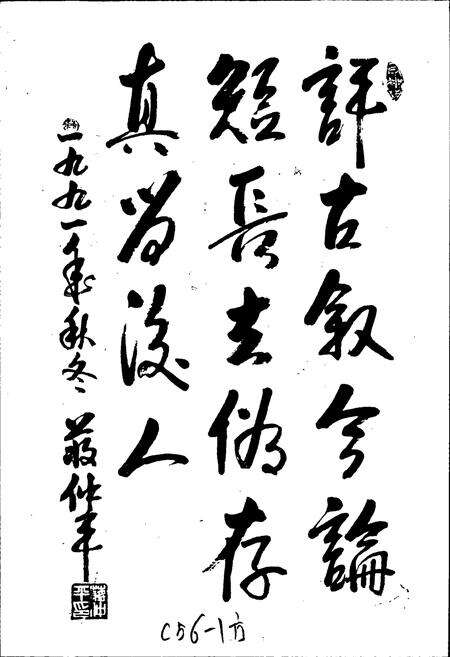 評古叙今論
短長去偽存
真留後人
一九九一年秋冬 蔣仲平
C56-1方